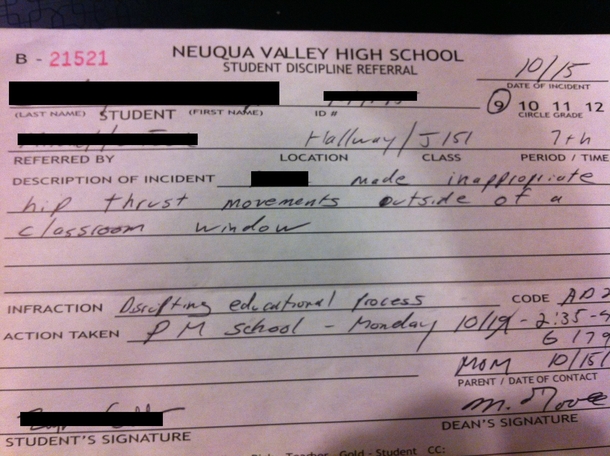 B - 21521
NEUQUA VALLEY HIGH SCHOOL
STUDENT DISCIPLINE REFERRAL
10/15
DATE OF INCIDENT
(LAST NAME) STUDENT (FIRST NAME) ID # 9 10 11 12
CIRCLE GRADE
Hallway / J151 7th
REFERRED BY LOCATION CLASS PERIOD / TIME
DESCRIPTION OF INCIDENT made inappropiate
hip thrust movements outside of a
classroom window
INFRACTION Disrupting educational process CODE AD2
ACTION TAKEN PM school - Monday 10/19 - 2:35-
G 179
MOM 10/15/
PARENT / DATE OF CONTACT
M. Moore
STUDENT'S SIGNATURE DEAN'S SIGNATURE
Teacher Gold - Student CC: